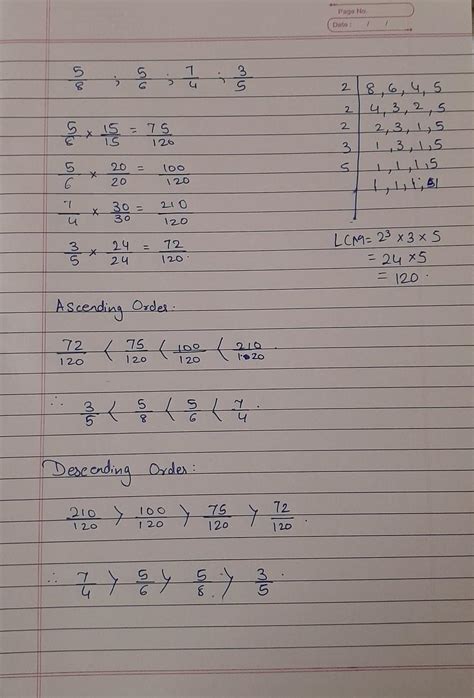 Page No.
Date : / /
5/8 ; 5/6 ; 7/4 ; 3/5
5/6 × 15/15 = 75/120
5/6 × 20/20 = 100/120
7/4 × 30/30 = 210/120
3/5 × 24/24 = 72/120.
2 | 8, 6, 4, 5
2 | 4, 3, 2, 5
2 | 2, 3, 1, 5
3 | 1, 3, 1, 5
5 | 1, 1, 1, 5
| 1, 1, 1, 1
LCM = 2³ × 3 × 5
= 24 × 5
= 120.
Ascending Order:
72/120 < 75/120 < 100/120 < 210/120.
∴ 3/5 < 5/8 < 5/6 < 7/4.
Descending Order:
210/120 > 100/120 > 75/120 > 72/120.
∴ 7/4 > 5/6 > 5/8. > 3/5.